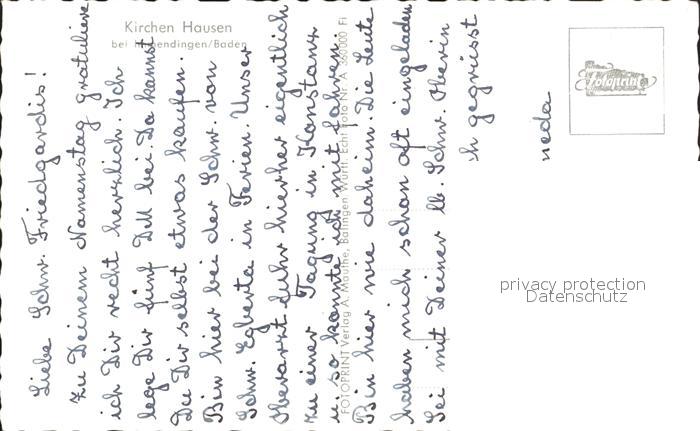 Kirchen Hausen
bei Hattendingen/Baden
Liebe Schw. Friedgardis!
Zu Deinem Namenstag gratuliere
ich Dir recht herzlich. Ich
lege Dir fünf DM bei Da kannst
Du Dir selbst etwas kaufen.
Bin hier bei der Schw. von
Schw. Egberta in Ferien. Unser
Oberarzt fuhr hierher eigentlich
zu einer Tagung in Konstanz
u. so konnte ich mit fahren.
Bin hier wie daheim. Die Leute
haben mich schon oft eingeladen
Sei mit Deiner lb. Schw. Oberin
h gegrüsst
neda
FOTOPRINT Verlag A. Mauthe, Balingen Württ. Echt Foto Nr. A 360000 Fi
Fotoprint
privacy protection
Datenschutz